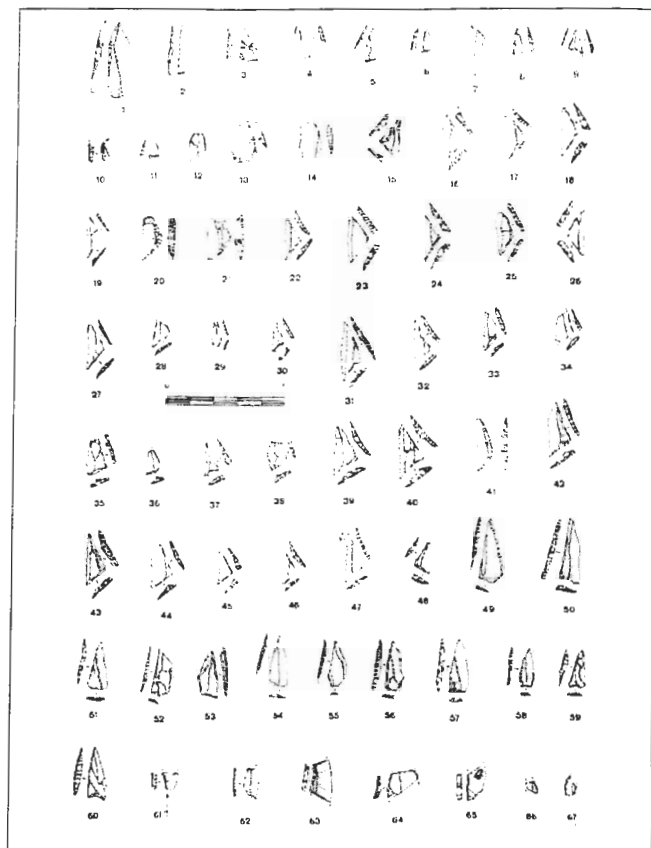 1 2 3 4 5 6 7 8 9
10 11 12 13 14 15 16 17 18
19 20 2 22 23 24 25 26
27 28 29 30 31 32 33 34
0
35 36 37 38 39 40 41 42
43 44 45 46 47 48 49 50
51 52 53 54 55 56 57 58 59
60 61 62 63 64 65 66 67